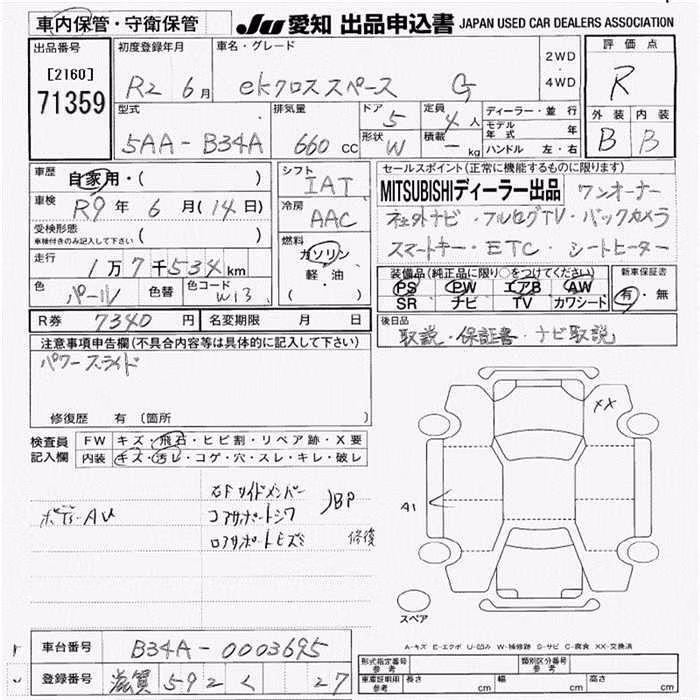 車内保管・守衛保管
JU 愛知 出品申込書 JAPAN USED CAR DEALERS ASSOCIATION
出品番号
[2160]
71359
初度登録年月
R2 6月
車名・グレード
ekクロススペース G
2WD
・
4WD
評価点
R
外装 内装
B B
型式
5AA-B34A
排気量
660 cc
ドア 5
形状 W
定員 4人
積載 - kg
ディーラー・並行
モデル年式 年
ハンドル 左・右
車歴 自家用・( )
車検 R9年 6月(14日)
受検形態
車検付きのみ記入して下さい ( )
走行 1万7千534km
色 パール 色替 色コード W13
シフト IAT
冷房 AAC
燃料
ガソリン
軽・油
( )
セールスポイント(正常に機能するものに限ります)
MITSUBISHIディーラー出品 ワンオーナー
社外ナビ・フルセグTV・バックカメラ
スマートキー・ETC・シートヒーター
装備品(純正品に限り○をつけてください)
PS PW エアB AW
SR ナビ TV カワシート
新車保証書
有・無
R券 7340円 名変期限 月 日
後日品
取説・保証書・ナビ取説
注意事項申告欄(不具合内容等は具体的に記入して下さい)
パワースライド
修復歴 有 〔箇所
検査員
記入欄
FW キズ・飛石・ヒビ割・リペア跡・X要
内装 キズ・汚レ・コゲ・穴・スレ・キレ・破レ
右Fサイドメンバー
コアサポートシワ
BP
ロアサポートヒズミ 修復
ボデーAU
XX
A1
スペア
A-キズ E-エクボ U-凹み W-補修跡 S-サビ C-腐食 XX-交換済
車台番号 B34A-0003695
登録番号 滋賀 592 く 27
形式指定番号 参考
類別区分番号 参考
車庫証明用 参考 長さ cm 幅 cm 高さ cm